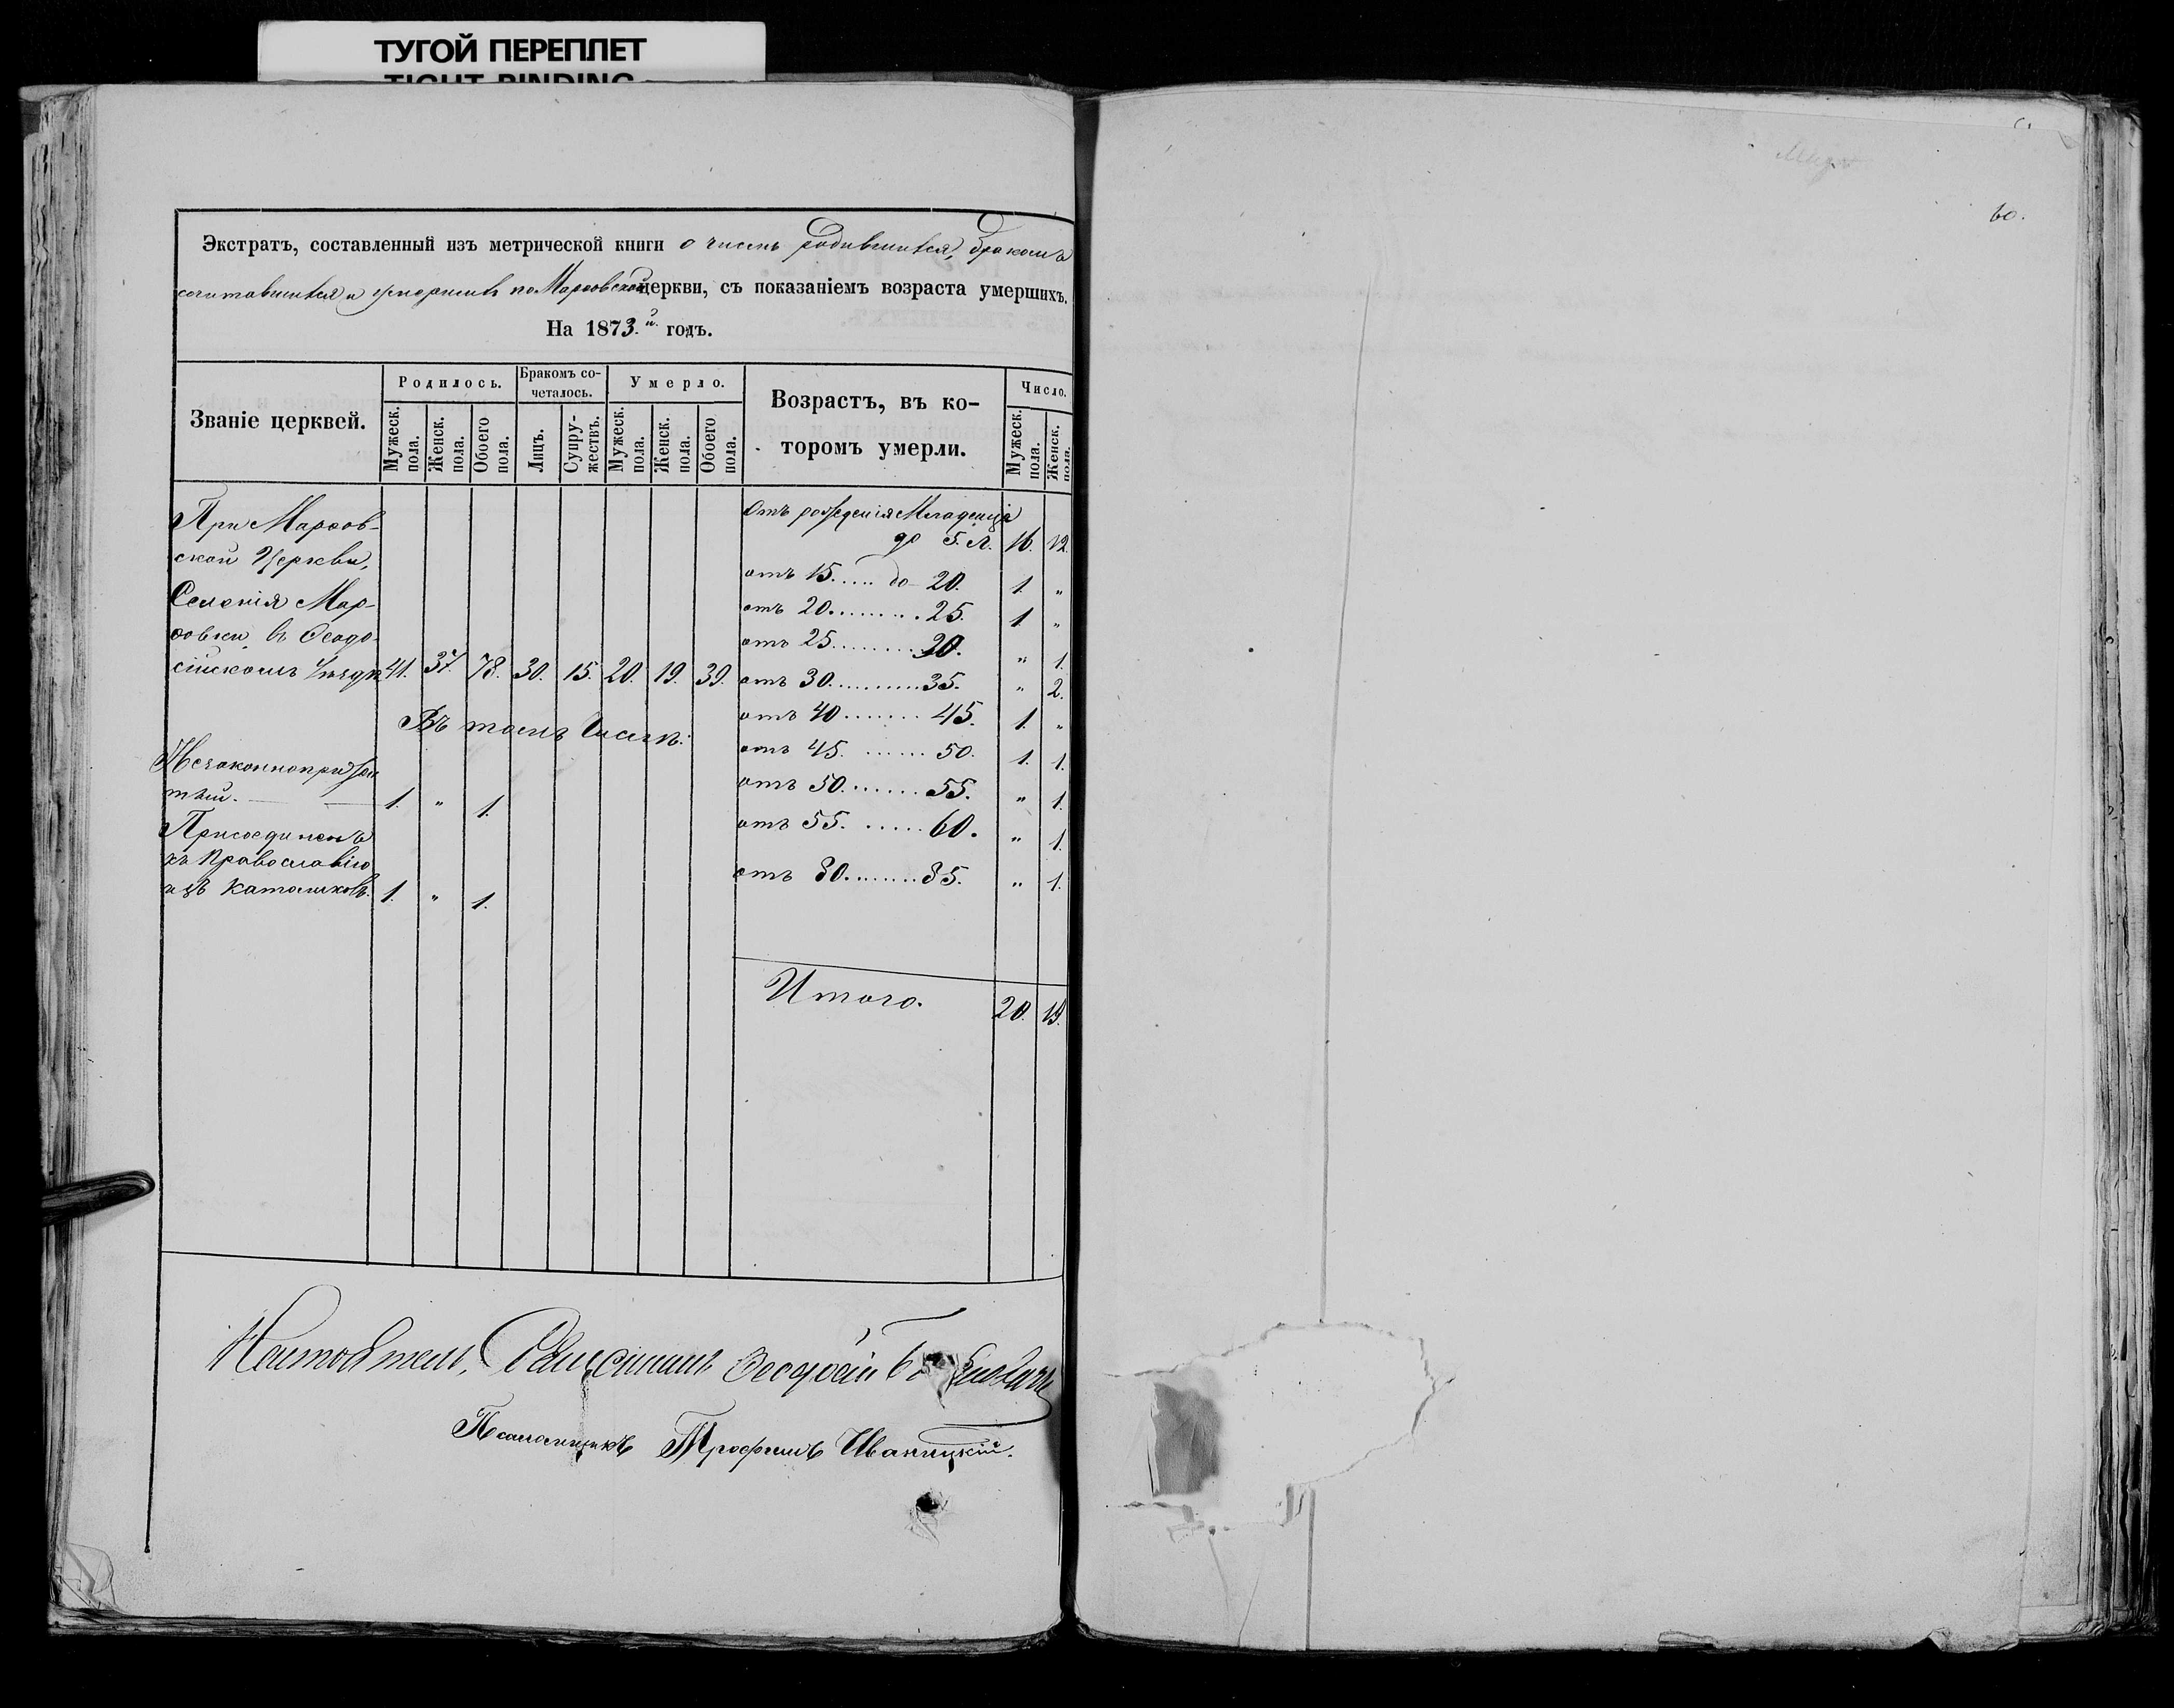 ТУГОЙ ПЕРЕПЛЕТ
TIGHT BINDING
Экстратъ, составленный изъ метрической книги о числѣ родившихся, бракомъ
сочитавшихся и умершихъ по Марфовской церкви, съ показаніемъ возраста умершихъ.
На 1873.й годъ.
Званіе церквей.
Родилось.
Бракомъ сочеталось.
Умерло.
Возрастъ, въ которомъ умерли.
Число.
Мужеск. пола.
Женск. пола.
Обоего пола.
Лицъ.
Супружествъ.
Мужеск. пола.
Женск. пола.
Обоего пола.
Мужеск. пола.
Женск. пола.
При Марфов-
ской Церкви,
Селенія Мар-
фовки, въ Ѳеодо-
сійскомъ Уѣздѣ 41. 37. 78. 30. 15. 20. 19. 39.
Въ томъ числѣ:
Незаконноприжи
тый. 1. " 1.
Присоединенъ
къ Православію
изъ Католиковъ. 1. " 1.
Отъ рожденія Младенца
до 5. л. 16. 12.
отъ 15..... до 20. 1. "
отъ 20......... 25. 1. "
отъ 25......... 30. " 1.
отъ 30.......... 35. " 2.
отъ 40....... 45. 1. "
отъ 45. ...... 50. 1. 1.
отъ 50....... 55. " 1.
отъ 55. ...... 60. " 1.
отъ 80........ 85. " 1.
Итого. 20. 19.
Настоятель, Священникъ
Псаломщикъ Трофимъ Иваницкій.
60.